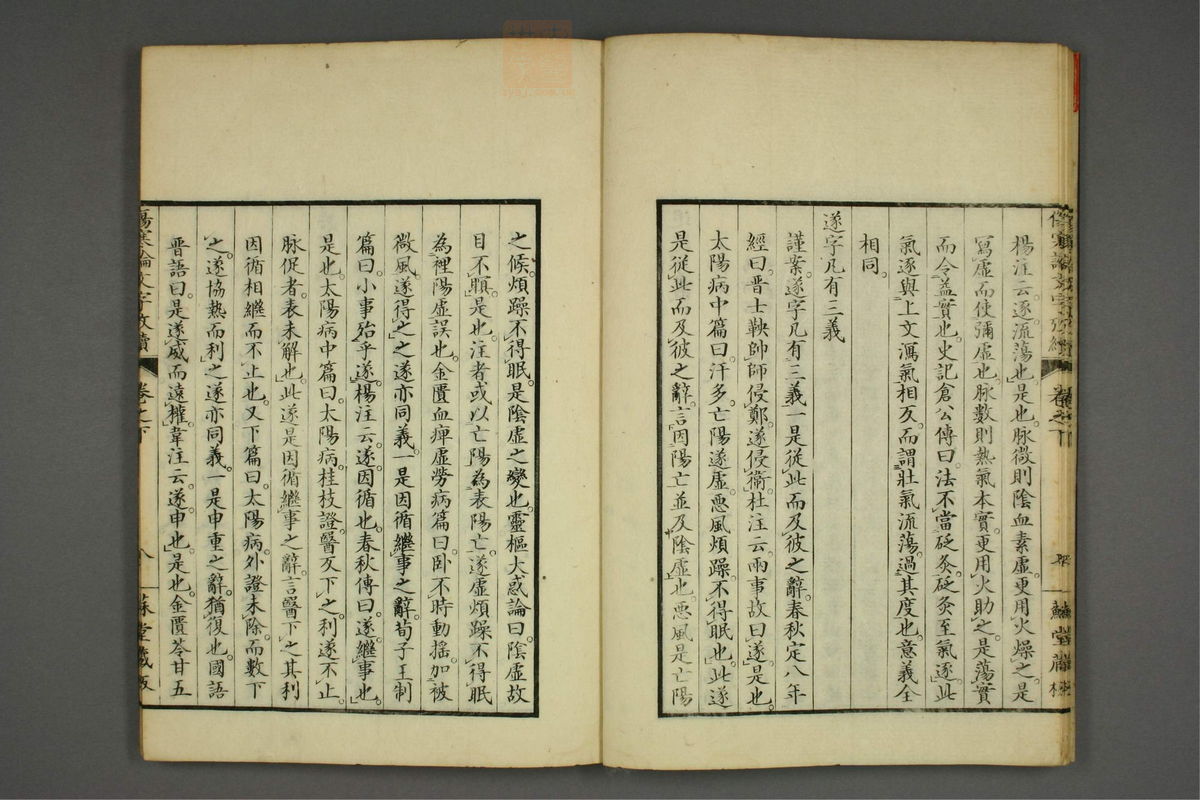 楊注云。逐流蕩也是也。脉微則陰血素虛。更用火燥之。是
寫虛而使彌虛也。脉數則熱氣本實。更用火助之。是蕩實
而令益實也。史記倉公傳曰。法不當砭灸。砭灸至氣逐。此
氣逐與上文濁氣相反。而謂壯氣流蕩。過其度也。意義全
相同。
遂字凡有三義
謹案。遂字凡有三義。一是從此而及彼之辭。春秋定八年
經曰。晋士鞅帥師侵鄭。遂侵衛。杜注云。兩事故曰遂。是也。
太陽病中篇曰。汗多。亡陽遂虛。惡風煩躁。不得眠也。此遂
是從此而及彼之辭。言因陽亡並及陰虛也。惡風是亡陽
之候。煩躁不得眠。是陰虛之變也。靈樞大惑論曰。陰虛故
目不瞑。是也。注者或以亡陽為表陽亡。遂虛煩躁不得眠
為裡陽虛誤也。金匱血痺虛勞病篇曰。卧不時動搖。加被
微風。遂得之。之遂亦同義。一是因循繼事之辭。荀子王制
篇曰。小事殆乎遂。楊注云。遂。因循也。春秋傳曰。遂。繼事也。
是也。太陽病中篇曰。太陽病。桂枝證。醫反下之。利遂不止。
脉促者。表未解也。此遂是因循繼事之辭。言醫下之其利
因循相繼而不止也。又下篇曰。太陽病。外證未除。而數下
之。遂協熱而利之遂亦同義。一是申重之辭。猶復也。國語
晋語曰。是遂威而遠權。韋注云。遂。申也。是也。金匱苓甘五
傷寒論文字攷續
卷之下
八